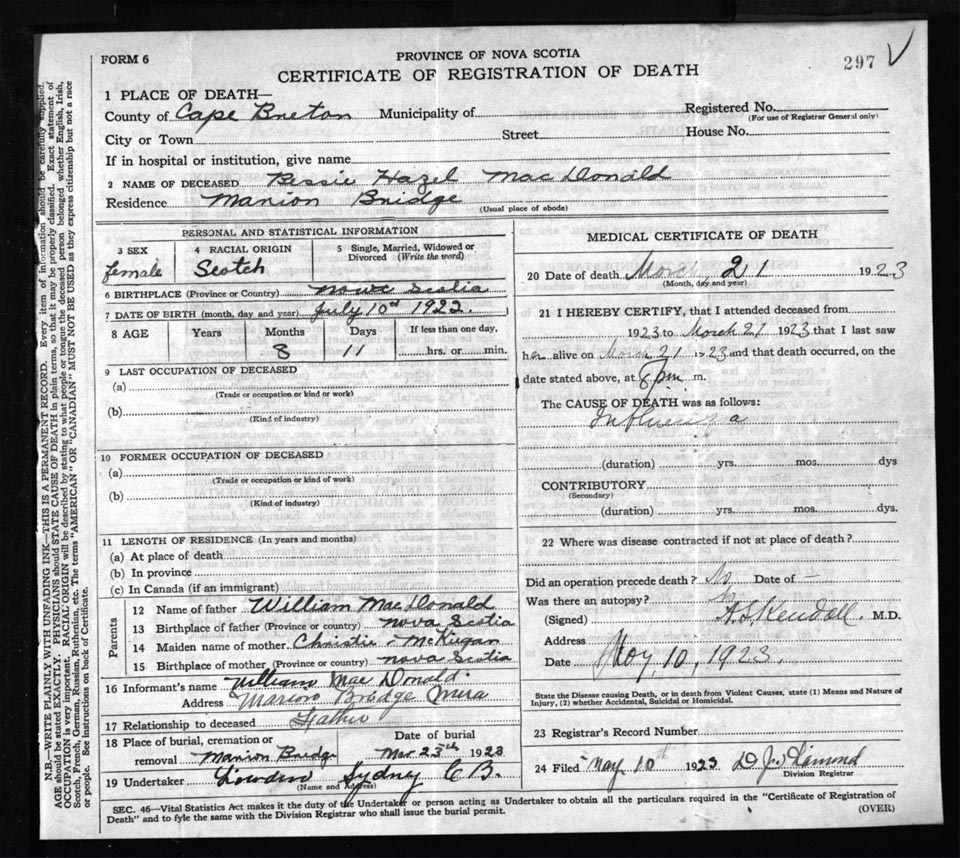 FORM 6
PROVINCE OF NOVA SCOTIA
CERTIFICATE OF REGISTRATION OF DEATH
297
1 PLACE OF DEATH—
County of Cape Breton Municipality of
Registered No.
(For use of Registrar General only)
City or Town Street House No.
If in hospital or institution, give name
2 NAME OF DECEASED Bessie Hazel MacDonald
Residence Marion Bridge
(Usual place of abode)
PERSONAL AND STATISTICAL INFORMATION
3 SEX 4 RACIAL ORIGIN 5 Single, Married, Widowed or Divorced (Write the word)
female Scotch
6 BIRTHPLACE (Province or Country) Nova Scotia
7 DATE OF BIRTH (month, day and year) July 10th 1922.
8 AGE Years Months Days If less than one day.
8 11 hrs. or min.
9 LAST OCCUPATION OF DECEASED
(a)
(Trade or occupation or kind or work)
(b)
(Kind of industry)
10 FORMER OCCUPATION OF DECEASED
(a)
(Trade or occupation or kind of work)
(b)
(Kind of industry)
11 LENGTH OF RESIDENCE (In years and months)
(a) At place of death
(b) In province
(c) In Canada (if an immigrant)
Parents
12 Name of father William MacDonald
13 Birthplace of father (Province or country) Nova Scotia
14 Maiden name of mother Christie McKiegan
15 Birthplace of mother (Province or country) Nova Scotia
16 Informant's name William MacDonald
Address Marion Bridge Mira
17 Relationship to deceased Father
18 Place of burial, cremation or removal Marion Bridge
Date of burial Mar 23th 1923
19 Undertaker Sydney C.B.
(Name and Address)
MEDICAL CERTIFICATE OF DEATH
20 Date of death March 21 1923
(Month, day and year)
21 I HEREBY CERTIFY, that I attended deceased from
1923 to March 21 1923 that I last saw
her alive on March 21 1923 and that death occurred, on the
date stated above, at 8 pm m.
The CAUSE OF DEATH was as follows:
Influenza
(duration) yrs. mos. dys
CONTRIBUTORY
(Secondary)
(duration) yrs. mos. dys.
22 Where was disease contracted if not at place of death?
Did an operation precede death? No Date of –
Was there an autopsy?
(Signed) A.S. Kendall. M.D.
Address
Date May 10, 1923.
State the Disease causing Death, or in death from Violent Causes, state (1) Means and Nature of
Injury, (2) whether Accidental, Suicidal or Homicidal.
23 Registrar's Record Number
24 Filed May 10th 1923
Division Registrar
SEC. 46—Vital Statistics Act makes it the duty of the Undertaker or person acting as Undertaker to obtain all the particulars required in the "Certificate of Registration of
Death" and to fyle the same with the Division Registrar who shall issue the burial permit.
(OVER)
N.B.—WRITE PLAINLY WITH UNFADING INK—THIS IS A PERMANENT RECORD. Every item of information should be carefully supplied.
AGE should be stated EXACTLY. PHYSICIANS should STATE CAUSE OF DEATH in plain terms, so that it may be properly classified. Exact statement of
OCCUPATION is very important. RACIAL ORIGIN will be described by stating to what people or tongue the deceased person belonged whether English, Irish,
Scotch, French, German, Russian, Ruthenian, etc. The terms "AMERICAN" OR "CANADIAN" MUST NOT BE USED as they express citizenship but not a race
or people. See instructions on back of Certificate.